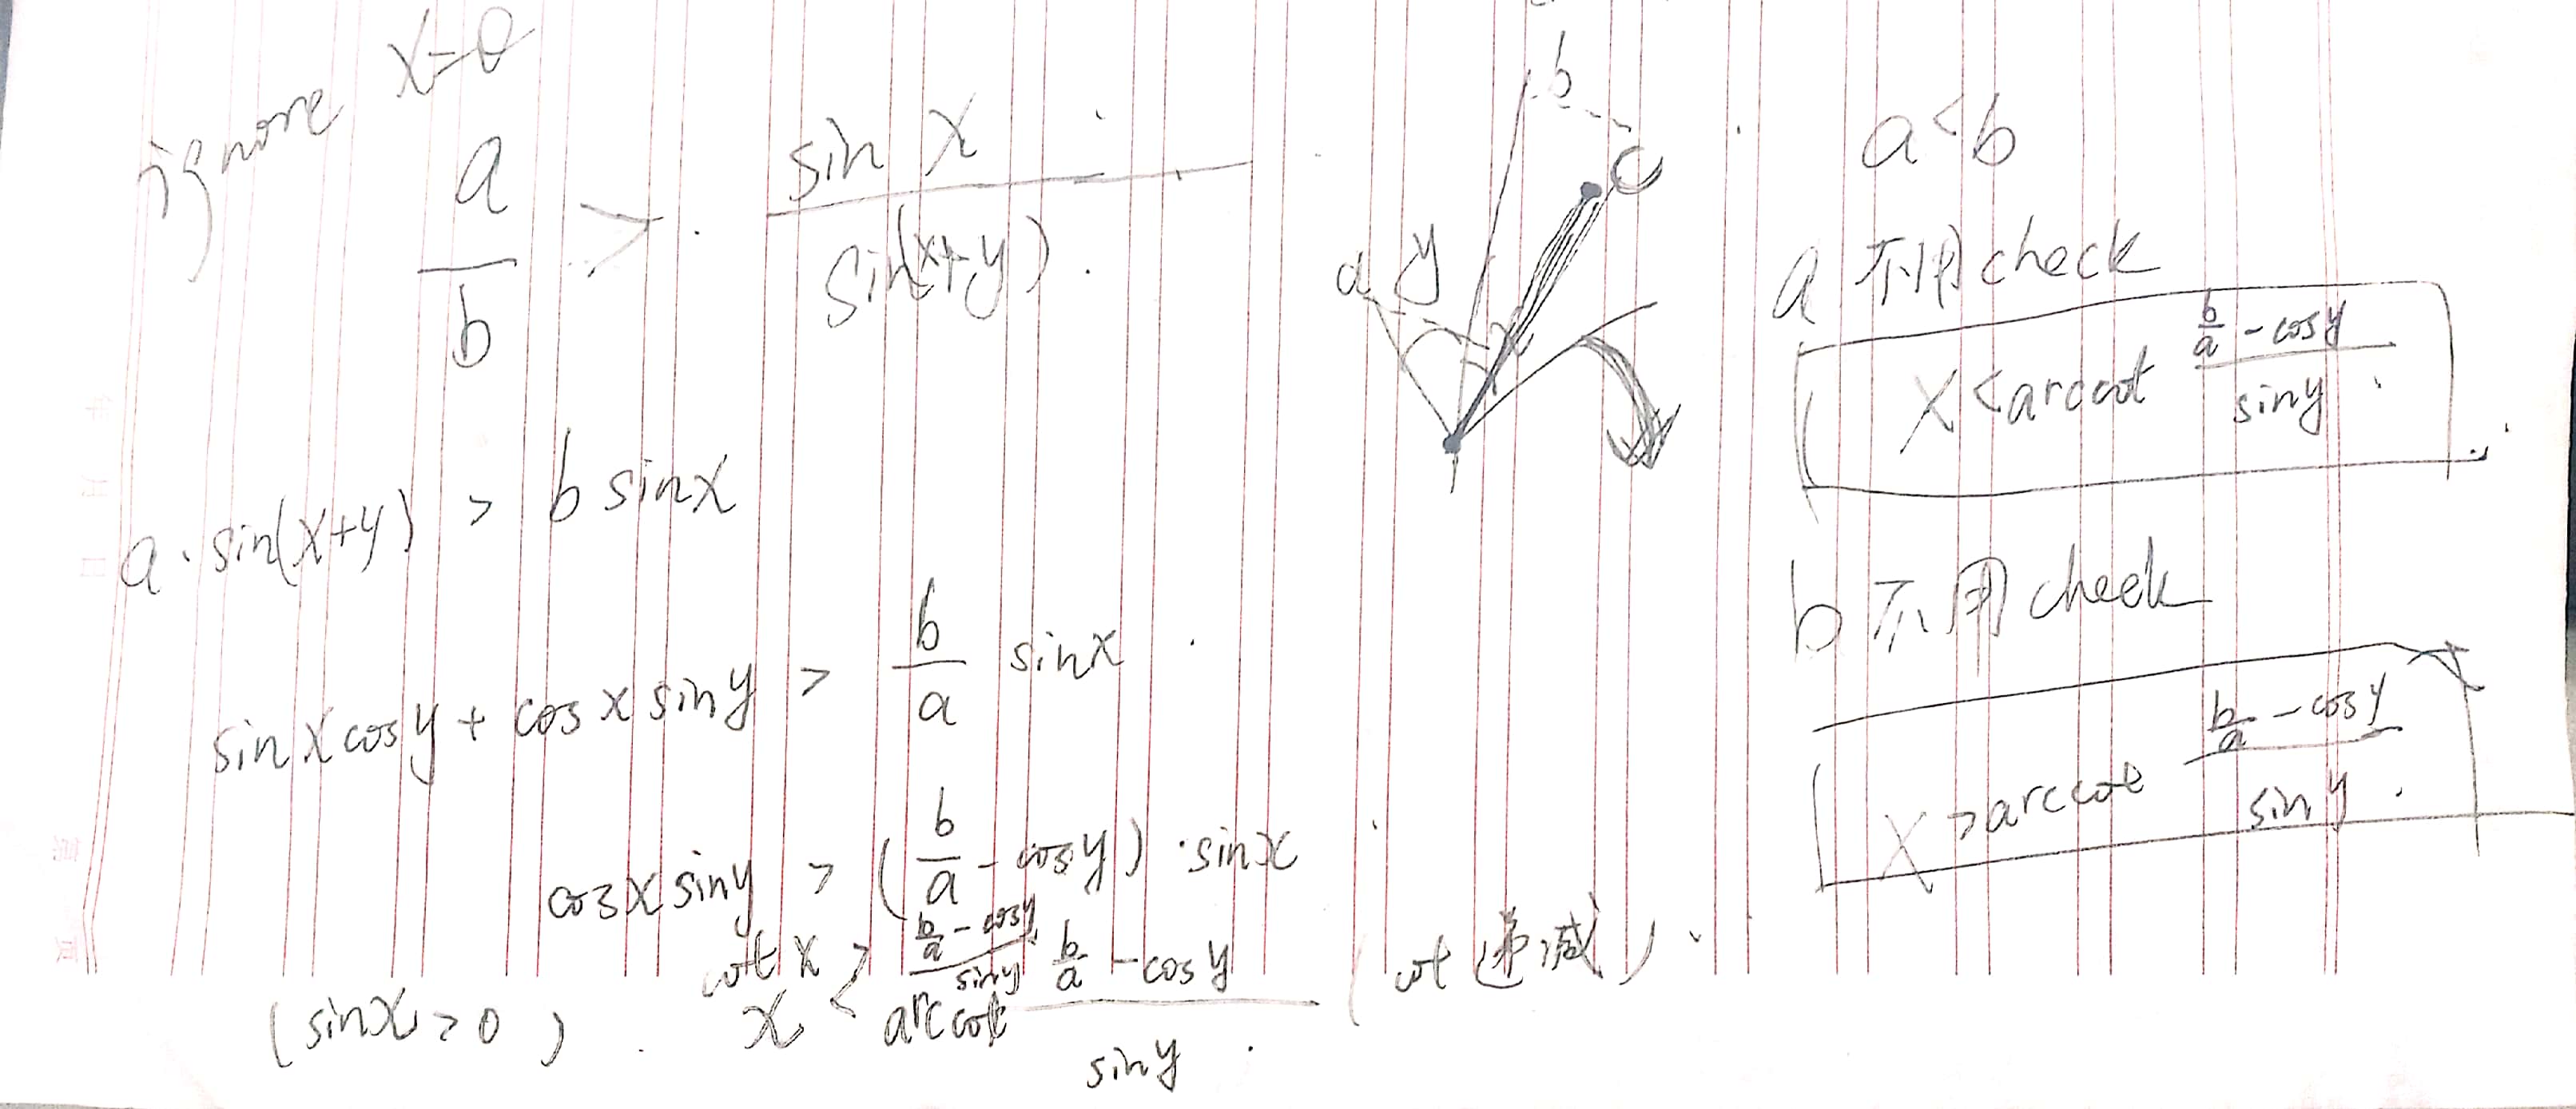 ignore x=0
a/b > sin x / sin(x+y)
a · sin(x+y) > b sinx
sinx cosy + cosx siny > b/a sinx
cosx siny > (b/a - cosy) · sinx
cot x > (b/a - cosy) / siny
(sinx > 0) x < arccot (b/a - cosy) / siny (cot 递减)
b
C
a y
x
a < b
a 不用 check
x < arccot (b/a - cosy) / siny
b 不用 check
x > arccot (b/a - cosy) / siny
年 月 日
页